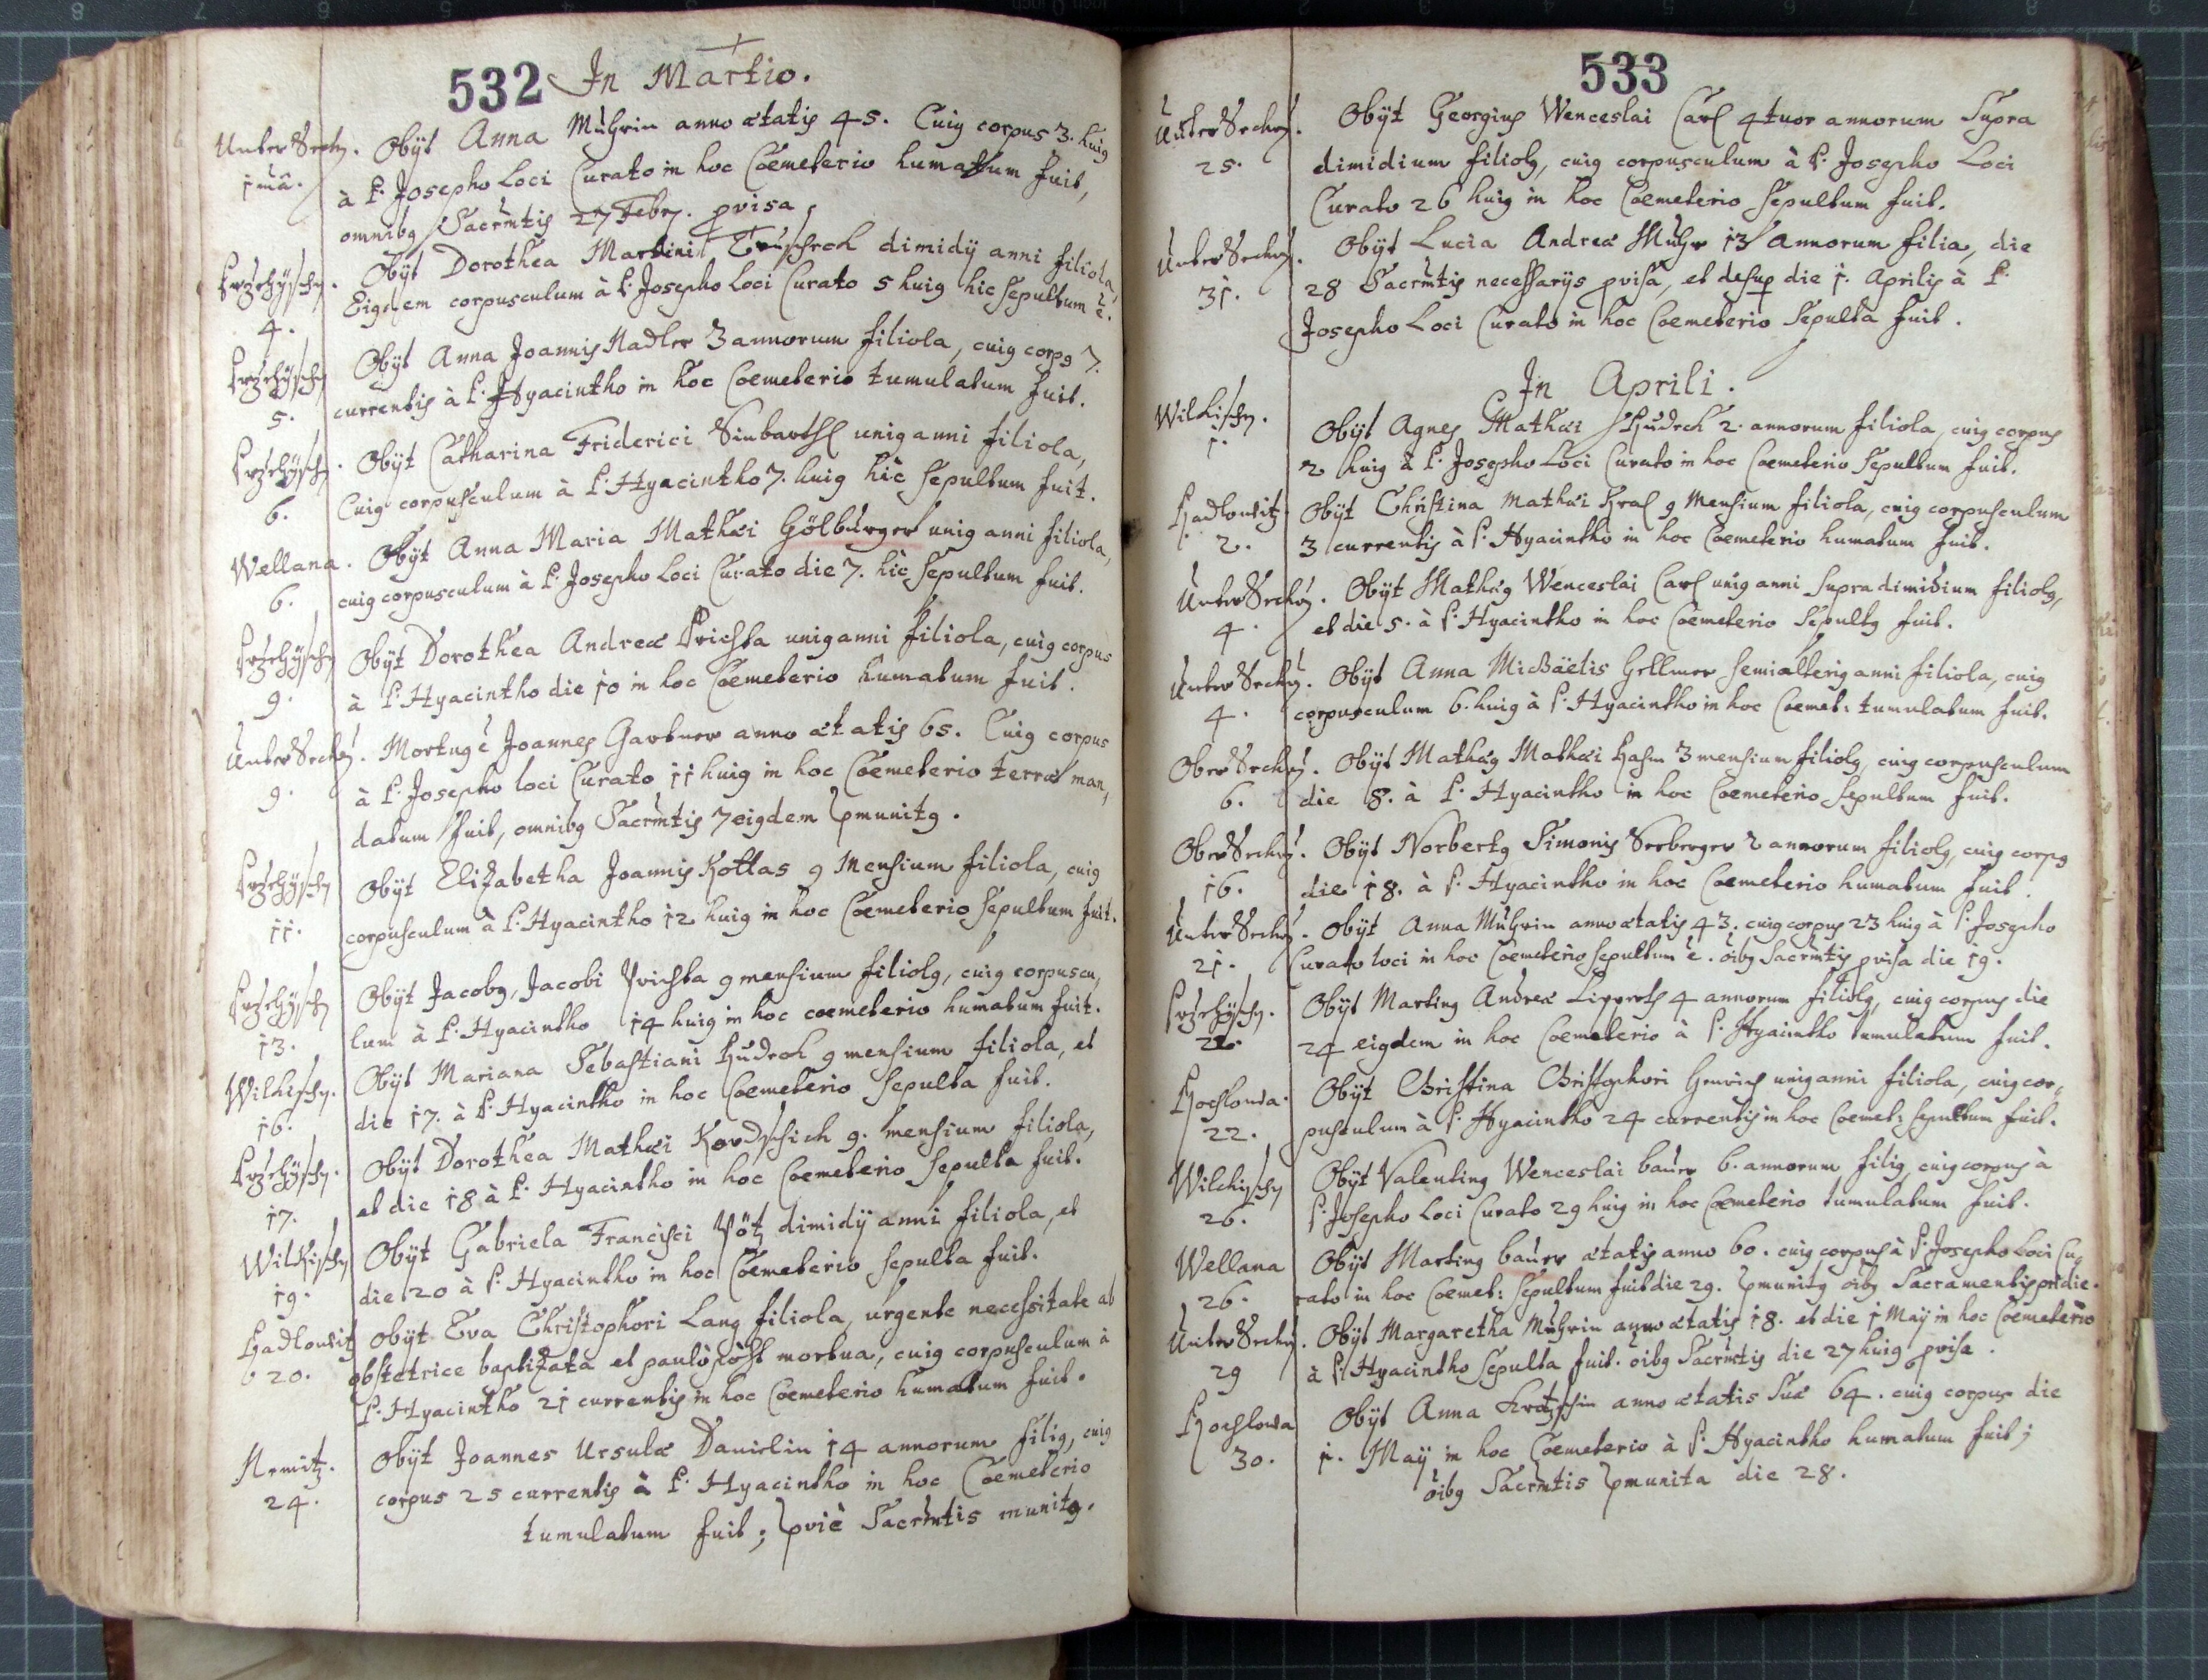 532 In Martio.
Unter Srchy. Obÿt Anna Muhrin anno ætatis 45. Cuig corpus 3. huig
1mâ. à P. Josepho Loci Curato in hoc Coemeterio humatum fuit,
omnibg Sacrmtis 27 Febr. pvisa.
Przehÿschn. Obÿt Dorothea Martini dimidÿ anni filiola,
4. Eigdem corpusculum à P. Josepho Loci Curato 5 huig hic sepultum ē.
Przehÿschn Obÿt Anna Joannis Nadler 3 annorum filiola, cuig corpg 7.
5. currentis à P. Hyacintho in hoc Coemeterio tumulatum fuit.
Przehÿschn. Obÿt Catharina Friderici Sinbarthl unig anni filiola,
6. Cuig corpusculum à P. Hyacintho 7. huig hic sepultum fuit.
Wellana. Obÿt Anna Maria Mathæi Gölbürger unig anni filiola,
6. cuig corpusculum à P. Josepho Loci Curato die 7. hic sepultum fuit.
Przehÿschn Obÿt Dorothea Andreæ Prichta unig anni filiola, cuig corpus
9. à P. Hyacintho die 10 in hoc Coemeterio humatum fuit.
Unter Srchy. Mortug ē Joannes Gartner anno ætatis 65. Cuig corpus
9. à P. Josepho loci Curato 11 huig in hoc Coemeterio terræ man,
datum fuit, omnibg Sacrmtis 7 eigdem pmunitg.
Przehÿschn Obÿt Elizabetha Joannis Kottas 9 Mensium filiola, cuig
11. corpusculum à P. Hyacintho 12 huig in hoc Coemeterio sepultum fuit.
Przehÿschn Obÿt Jacobg, Jacobi Prichta 9 mensium filiolg, cuig corpuscu,
13. lum à P. Hyacintho 14 huig in hoc coemeterio humatum fuit.
Wilkischn. Obÿt Mariana Sebastiani Hudech 9 mensium filiola, et
16. die 17. à P. Hyacintho in hoc Coemeterio sepulta fuit.
Przehÿschn. Obÿt Dorothea Mathæi Kordschich 9. mensium filiola,
17. et die 18 à P. Hyacintho in hoc Coemeterio sepulta fuit.
Wilkischn Obÿt Gabriela Francisci Pötz dimidÿ anni filiola, et
19. die 20 à P. Hyacintho in hoc Coemeterio sepulta fuit.
Hadlowitz Obÿt Eva Christophori Lang filiola, urgente necessitate ab
20. obstetrice baptizata et paulò pòst mortua, cuig corpusculum à
P. Hyacintho 21 currentis in hoc Coemeterio humatum fuit.
Nemitz. Obÿt Joannes Ursulæ Danielin 14 annorum filig, cuig
24. corpus 25 currentis à P. Hyacintho in hoc Coemeterio
tumulatum fuit; priè Sacrmtis munitg.
533
Unter Srchy. Obÿt Georgius Wenceslai Carl 4tuor annorum Supra
25. dimidium filiolg, cuig corpusculum à P. Josepho Loci
Curato 26 huig in hoc Coemeterio sepultum fuit.
Unter Srchy. Obÿt Lucia Andreæ Muhr 13 annorum filia, die
31. 28 Sacrmtis necessarÿs pvisa, et desup die 1. Aprilis à P.
Josepho Loci Curato in hoc Coemeterio Sepulta fuit.
In Aprili.
Wilkischn. Obÿt Agnes Mathæi Hudech 2. annorum filiola, cuig corpus
1. 2 huig à P. Josepho Loci Curato in hoc Coemeterio Sepultum fuit.
Hadlowitz Obÿt Christina Mathæi Kral 9 Mensium filiola, cuig corpusculum
2. 3 currentis à P. Hyacintho in hoc Coemeterio humatum fuit.
Unter Srchy. Obÿt Mathæg Wenceslai Carl unig anni supra dimidium filiolg,
4. et die 5. à P. Hyacintho in hoc Coemeterio Sepultg fuit.
Unter Srchy. Obÿt Anna Michäelis Gellmer semialterig anni filiola, cuig
4. corpusculum 6. huig à P. Hyacintho in hoc Coemet: tumulatum fuit.
Ober Srchy. Obÿt Mathæg Mathæi Hahn 3 mensium filiolg, cuig corpusculum
6. die 8. à P. Hyacintho in hoc Coemeterio sepultum fuit.
Ober Srchy. Obÿt Norbertg Simonis Seeberger 2 annorum filiolg, cuig corpg
16. die 18. à P. Hyacintho in hoc Coemeterio humatum fuit.
Unter Srchy. Obÿt Anna Muhrin anno ætatis 43. cuig corpus 23 huig à P. Josepho
21. Curato loci in hoc Coemeterio sepultum ē. oibg Sacrmtis pvisa die 19.
Przehÿschn. Obÿt Marting Andreæ Lipperth 4 annorum filiolg, cuig corpus die
22. 24 eigdem in hoc Coemeterio à P. Hyacintho tumulatum fuit.
Hochlowa. Obÿt Christina Christophori unig anni filiola, cuig cor,,
22. pusculum à P. Hyacintho 24 currentis in hoc Coemet: sepultum fuit.
Wilckischn Obÿt Valenting Wenceslai baur 6. annorum filig, cuig corpus à
26. P. Josepho Loci Curato 29 huig in hoc Coemeterio tumulatum fuit.
Wellana Obÿt Marting baur ætatis anno 60. cuig corpus à P. Josepho Loci Cu,,
26. rato in hoc Coemet: sepultum fuit die 29. pmunitg oibg Sacramentis pridie.
Unter Srchy. Obÿt Margaretha Muhrin anno ætatis 18. et die 1 Maÿ in hoc Coemeterio
29 à P. Hyacintho sepulta fuit. oibg Sacrmtis die 27 huig pvisa.
Hochlowa Obÿt Anna anno ætatis Suæ 64. cuig corpus die
30. 1. Maÿ in hoc Coemeterio à P. Hyacintho humatum fuit;
oibg Sacrmtis pmunita die 28.